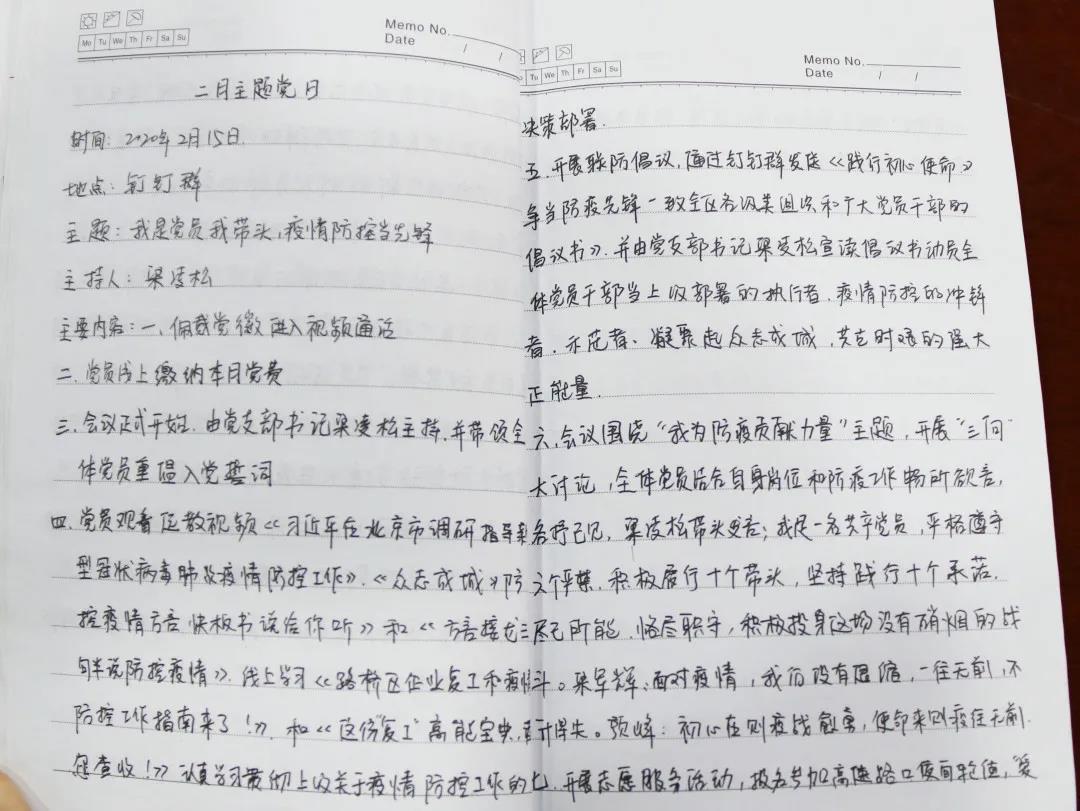 Memo No.
Mo Tu We Th Fr Sa Su
Date / /
二月主题党日
时间：2020年2月15日.
地点：钉钉群
主题：我是党员我带头，疫情防控当先锋
主持人：梁凌松
主要内容：一、佩戴党徽进入视频通话
二、党员线上缴纳本月党费
三、会议正式开始.由党支部书记梁凌松主持.并带领全
体党员重温入党誓词
四、党员观看 视频《习近平在北京市调研指导新
型冠状病毒肺炎疫情防控工作》.《众志成城》防
控疫情方言快板书说给你听》和《方言接龙三
句半说防控疫情》.线上学习《路桥区企业复工和疫情
防控工作指南来了！》和《这份"复工"高能宝典，请
您查收！》认真学习贯彻上级关于疫情防控工作的
Memo No.
Tu We Th Fr Sa Su
Date / /
决策部署.
五、开展联防倡议，通过钉钉群发送《践行初心使命》
争当防疫先锋一致全区各级类组织和广大党员干部的
倡议书》.并由党支部书记梁凌松宣读倡议书动员全
体党员干部当上级部署的执行者、疫情防控的冲锋
者、示范者、凝聚起众志成城、共克时艰的强大
正能量.
六、会议围绕"我为防疫贡献力量"主题，开展"三问"
大讨论，全体党员结合自身岗位和防疫工作畅所欲言，
各抒己见，梁凌松带头发言；我是一名共产党员，严格遵守
六个严禁，积极履行十个带头，坚持践行十个承诺.
尽己所能、恪尽职守，积极投身这场没有硝烟的战
斗。梁军辉：面对疫情，我们没有退缩，一往无前，不
计得失。 峰：初心在则疫战愈勇，使命来则疫往无前.
七、开展志愿服务活动，报名参加高速路口夜间轮值，